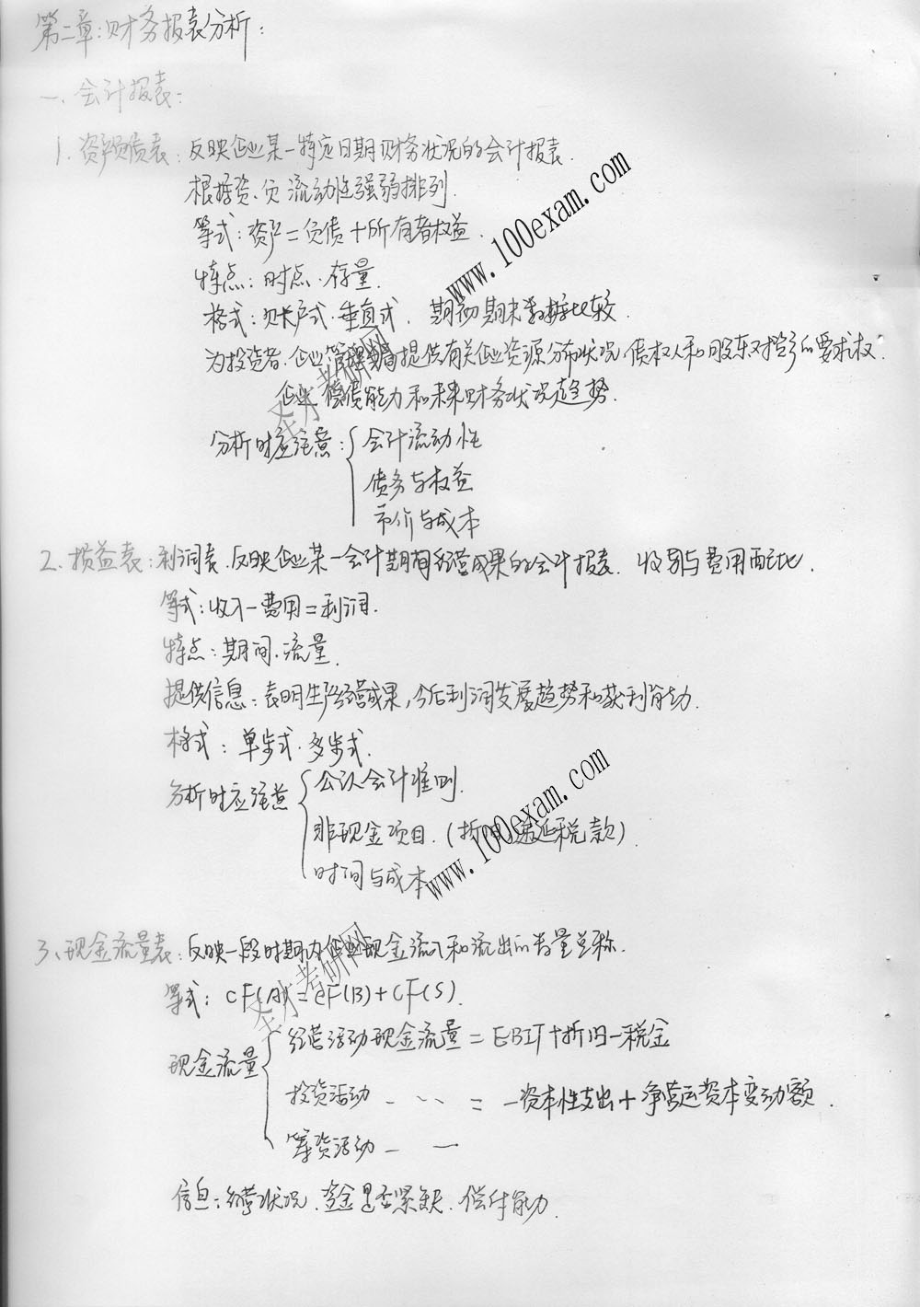 第二章:财务报表分析:
一、会计报表:
1. 资产负债表:反映企业某一特定日期财务状况的会计报表.
根据资、负 流动性强弱排列.
等式:资产=负债+所有者权益.
特点:时点·存量.
格式:账户式·垂直式. 期初期末数据比较
为投资者.企业管理者提供有关企业资源分布状况 债权人和股东对资产的要求权.
企业偿债能力和未来财务状况趋势.
分析时应注意: 会计流动性
债务与权益
市价与成本
2. 损益表:利润表.反映企业某一会计期间经营成果的会计报表. 收入与费用配比.
等式:收入-费用=利润.
特点:期间.流量.
提供信息:表明生产经营成果,今后利润发展趋势和获利能力.
格式:单步式·多步式.
分析时应注意 公认会计准则.
非现金项目.(折旧 递延税款)
时间与成本
3、现金流量表:反映一段时期内企业现金流入和流出的 总称.
等式:CF(A)=CF(B)+CF(S).
现金流量 经营活动现金流量=EBIT+折旧-税金
投资活动 - · · · = -资本性支出+净营运资本变动额.
筹资活动 - -
信息:经营状况.资金是否紧缺.偿付能力.
www.100exam.com
www.100exam.com
考研网
考研网